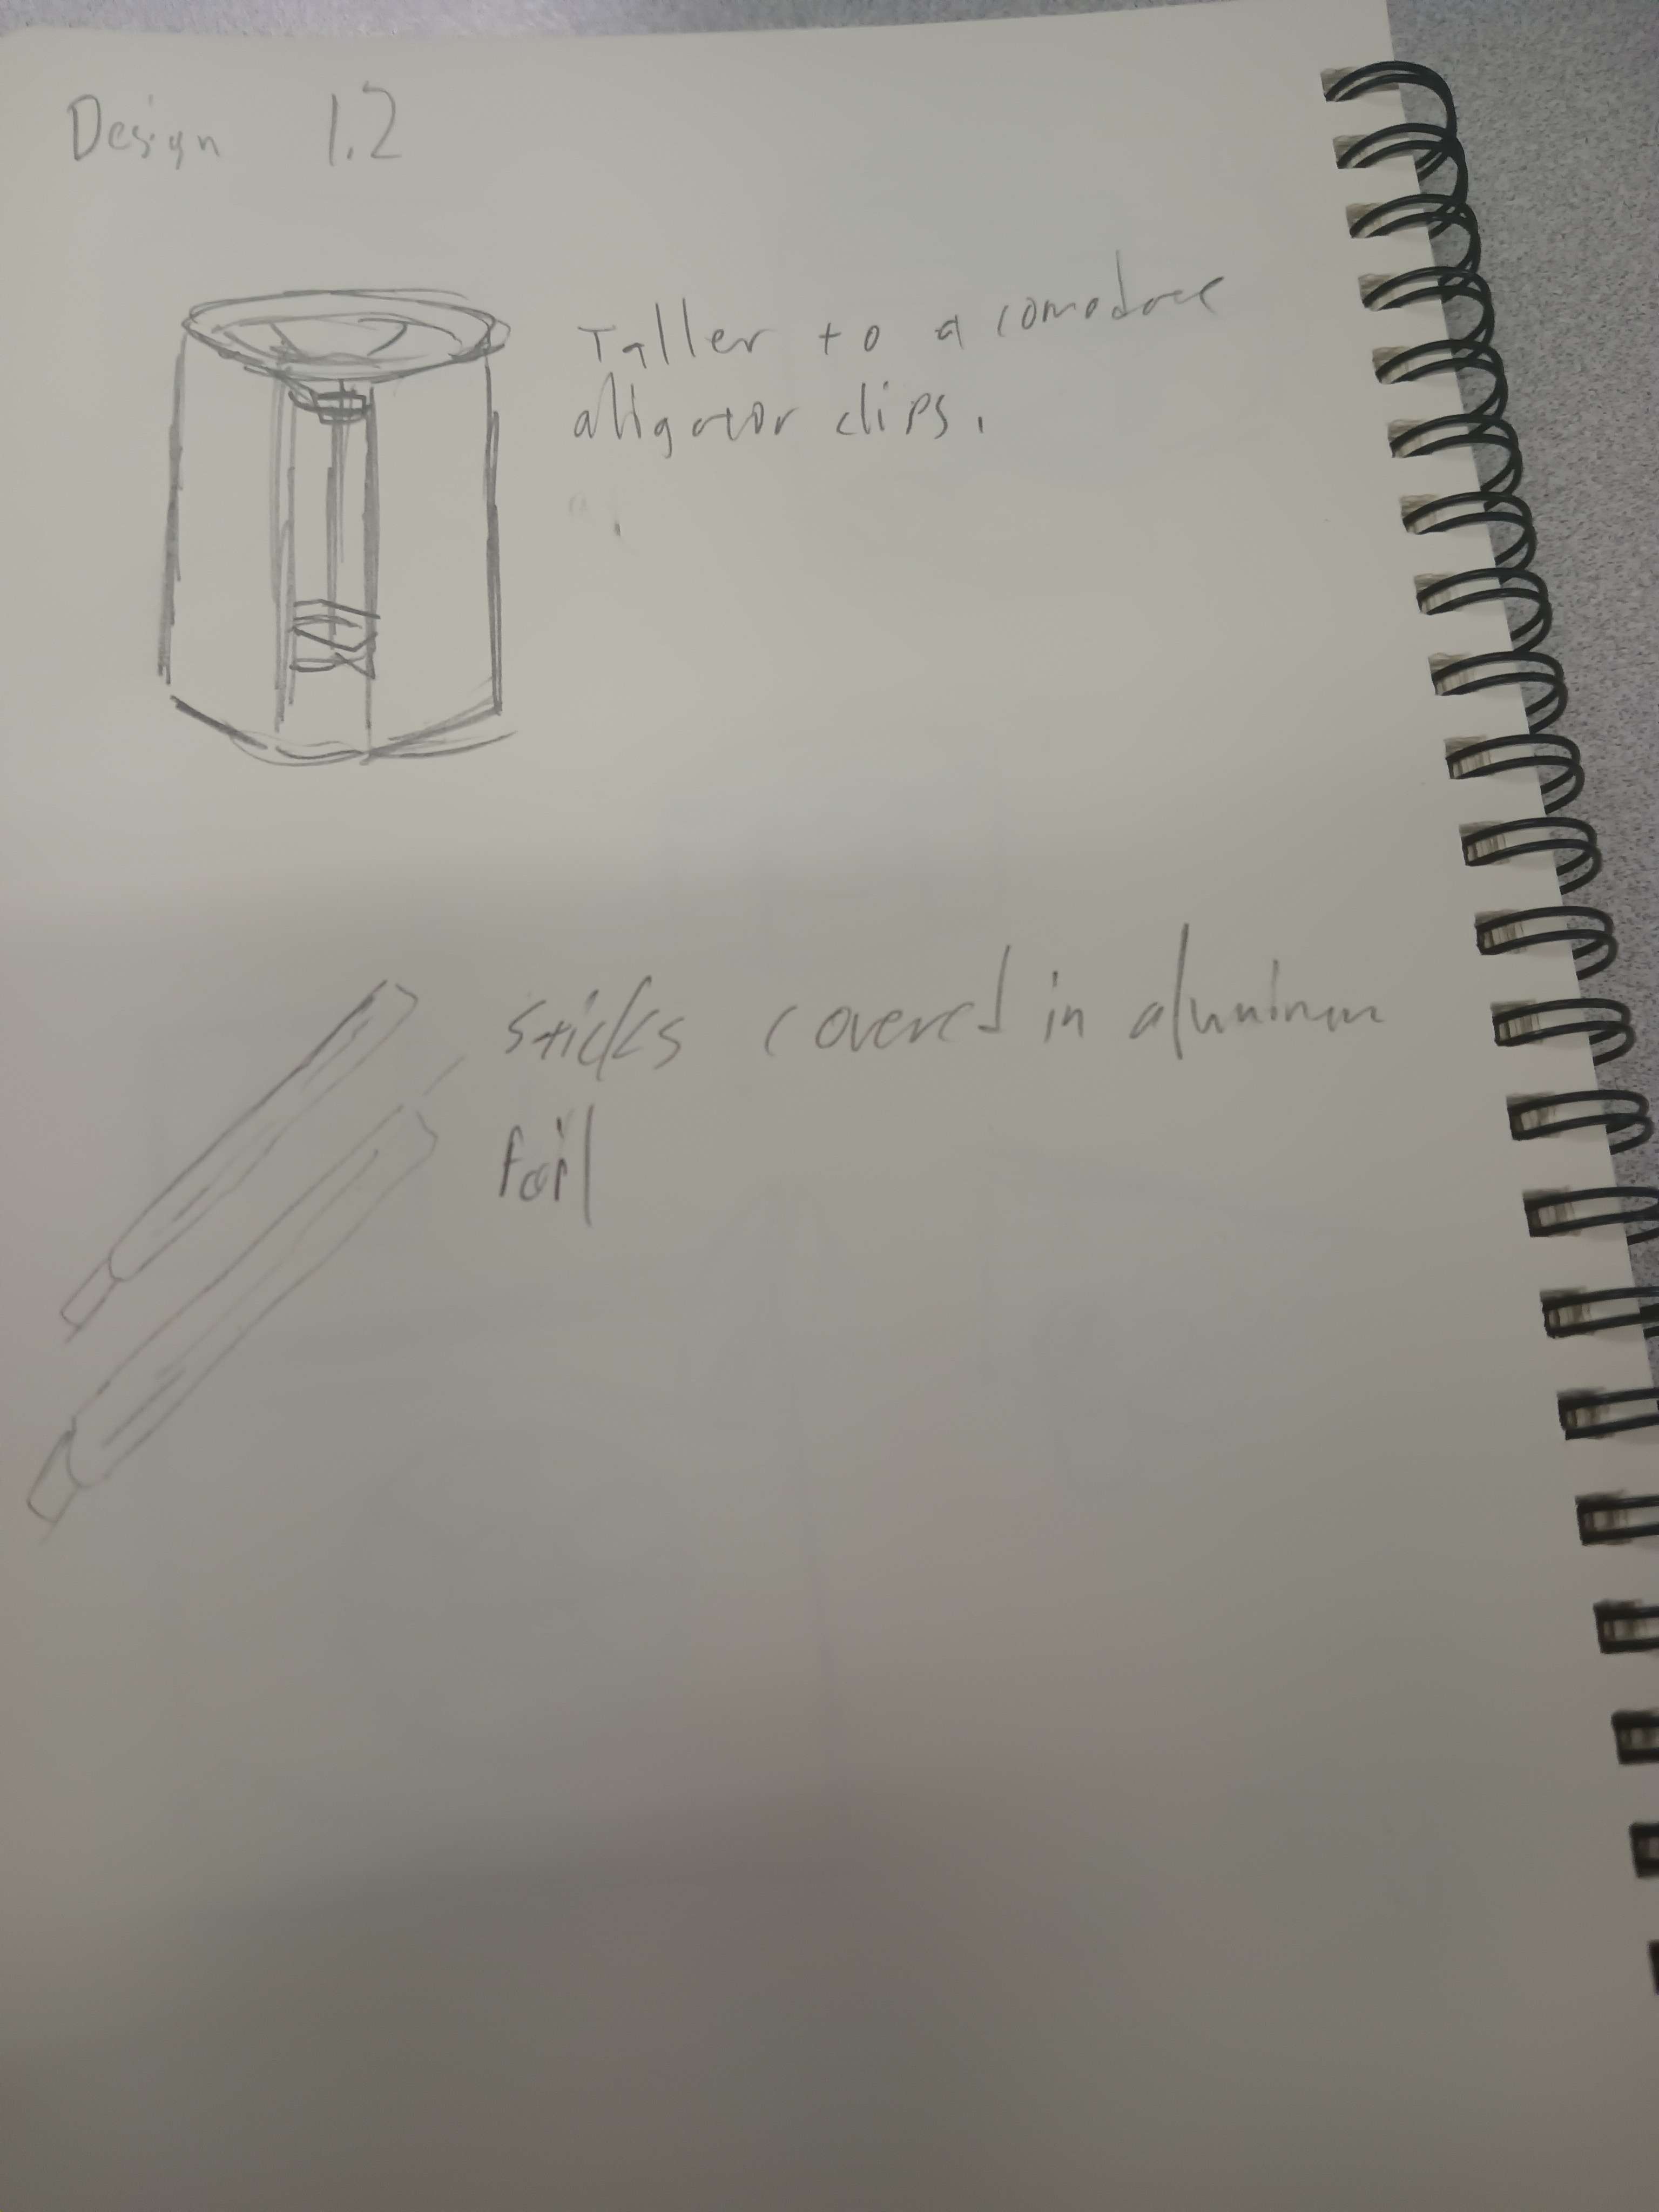 Design 1.2
Taller to a comodate
alligator clips.
Sticks covered in aluminum
foil